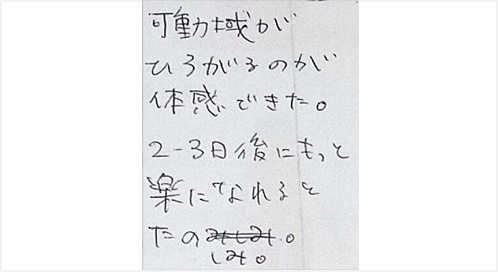 可動域が
ひろがるのが
体感できた。
2-3日後にもっと
楽になれると
たの
しみ。